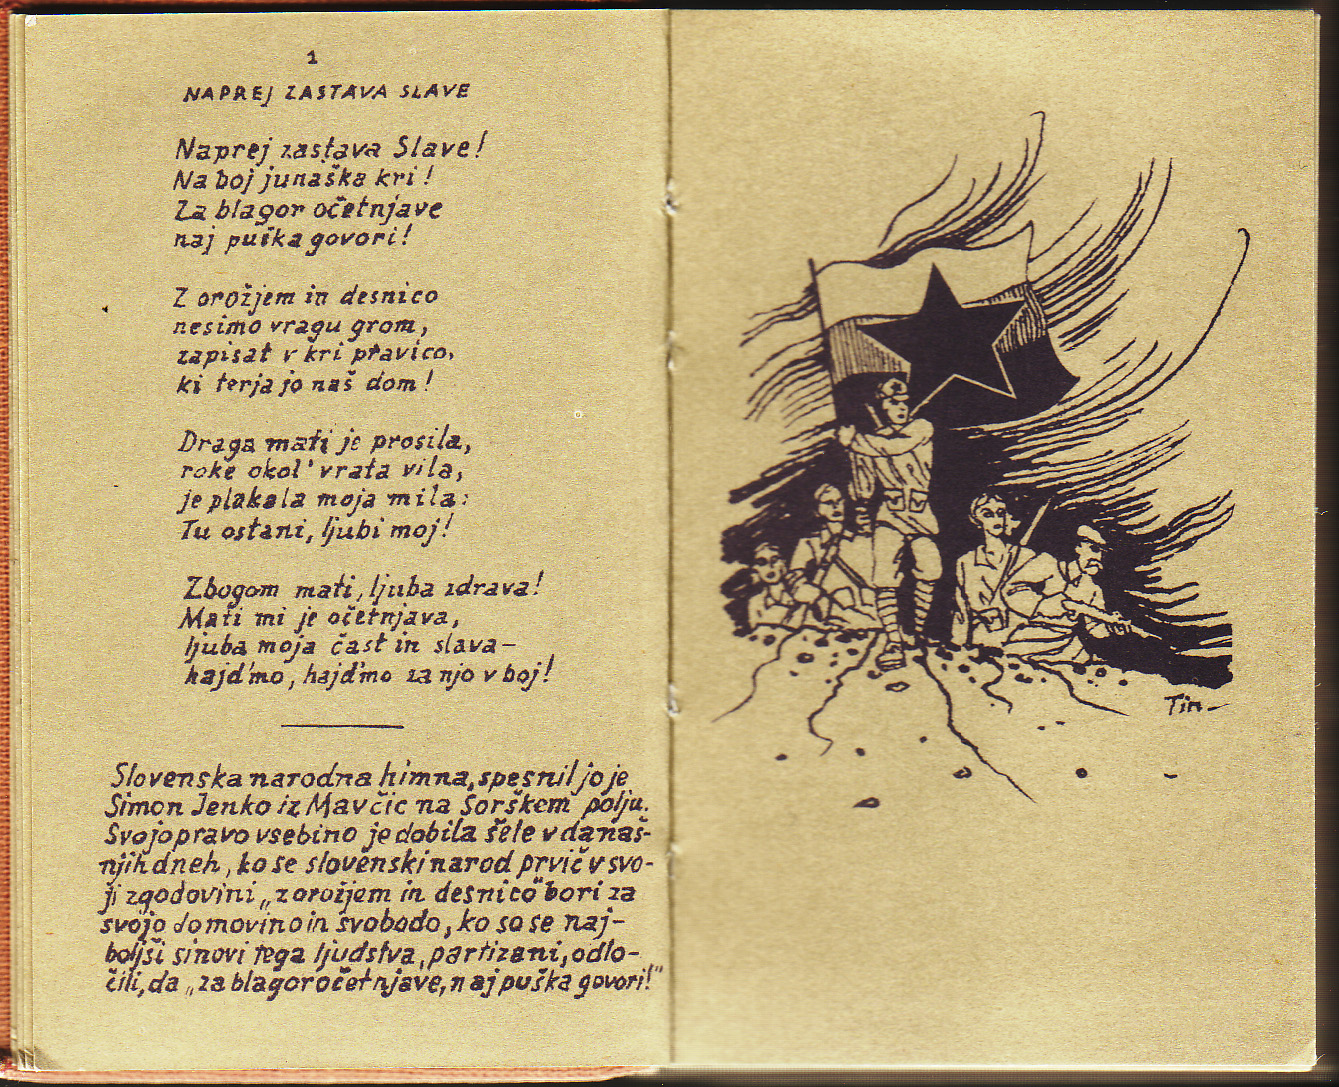 1
NAPREJ ZASTAVA SLAVE
Naprej zastava Slave!
Na boj junaška kri!
Za blagor očetnjave
naj puška govori!
Z orožjem in desnico
nesimo vragu grom,
zapisat v kri pravico,
ki terja jo naš dom!
Draga mati je prosila,
roke okol' vrata vila,
je plakala moja mila:
Tu ostani, ljubi moj!
Zbogom mati, ljuba zdrava!
Mati mi je očetnjava,
ljuba moja čast in slava–
hajd'mo, hajd'mo za njo v boj!
Slovenska narodna himna, spesnil jo je
Simon Jenko iz Mavčic na Sorškem polju.
Svojo pravo vsebino je dobila šele v današ-
njih dneh, ko se slovenski narod prvič v svo-
ji zgodovini „z orožjem in desnico“ bori za
svojo domovino in svobodo, ko so se naj-
boljši sinovi tega ljudstva, partizani, odlo-
čili, da „za blagor očetnjave, naj puška govori!“
Tin–